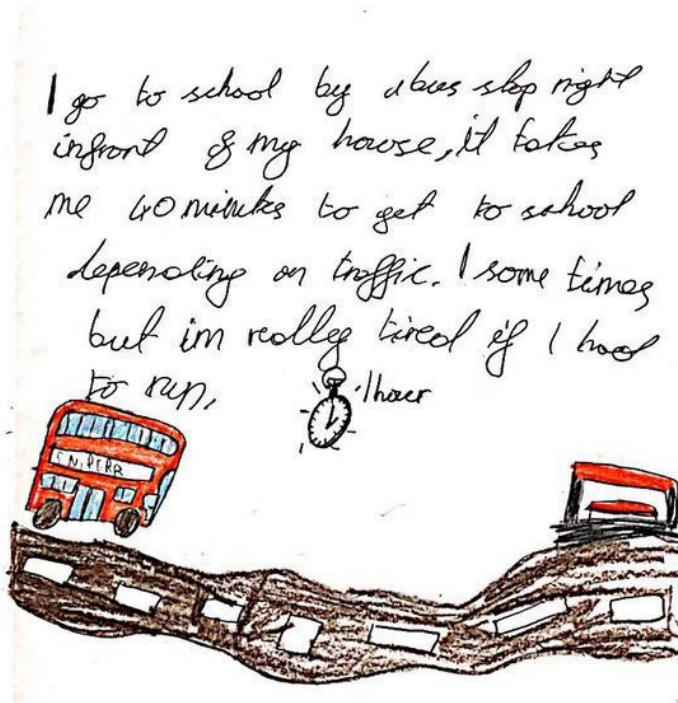 I go to school by a bus stop right
infront of my house, it takes
me 40 minutes to get to school
depending on traffic. I some times
but im really tired if I had
to run.
1 hour